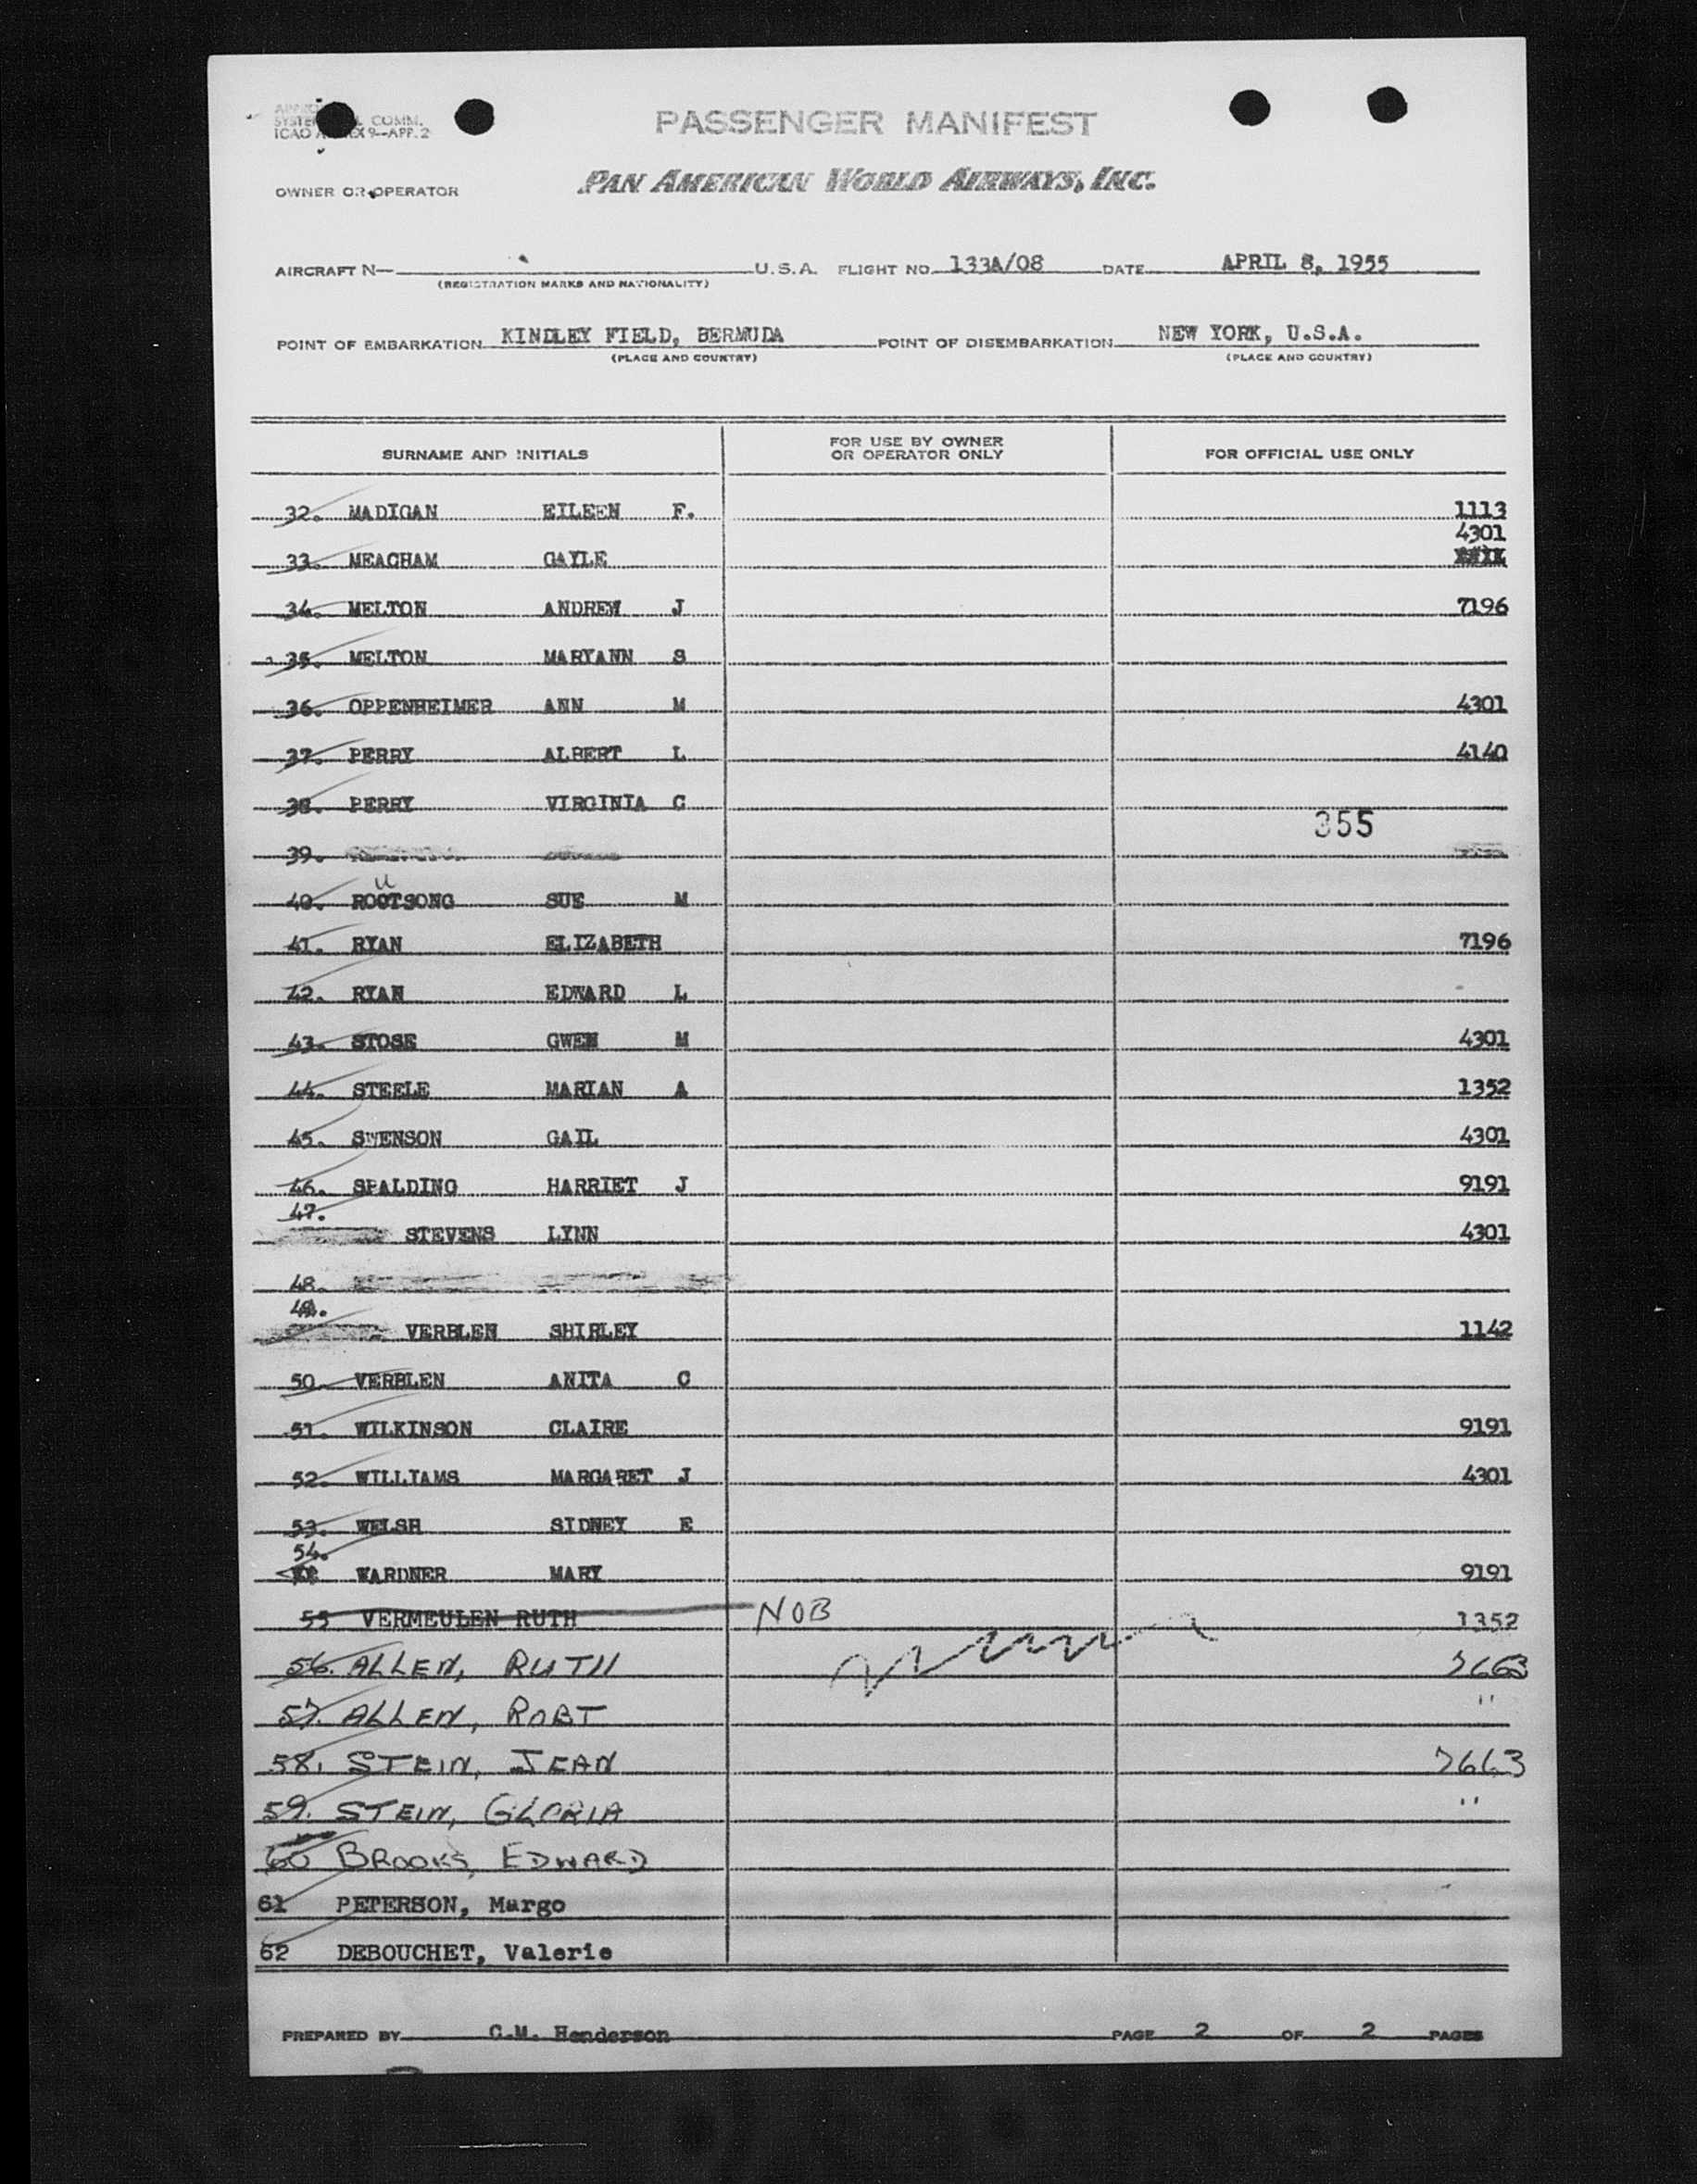 PASSENGER MANIFEST
COMM.
ICAO 9-APP. 2
OWNER OR OPERATOR PAN AMERICAN WORLD AIRWAYS, INC.
AIRCRAFT N— U.S.A. FLIGHT NO. 133A/08 DATE APRIL 8, 1955
(REGISTRATION MARKS AND NATIONALITY)
POINT OF EMBARKATION KINDLEY FIELD, BERMUDA POINT OF DISEMBARKATION NEW YORK, U.S.A.
(PLACE AND COUNTRY) (PLACE AND COUNTRY)
SURNAME AND INITIALS FOR USE BY OWNER OR OPERATOR ONLY FOR OFFICIAL USE ONLY
32. MADIGAN EILEEN F. 1113
4301
33. MEACHAM GAYLE
34. MELTON ANDREW J 7196
35. MELTON MARYANN S
36. OPPENHEIMER ANN M 4301
37. PERRY ALBERT L 4140
38. PERRY VIRGINIA C
355
39.
u
40. ROOTSONG SUE M
41. RYAN ELIZABETH 7196
42. RYAN EDWARD L
43. STOSE GWEN M 4301
44. STEELE MARIAN A 1352
45. SWENSON GAIL 4301
46. SPALDING HARRIET J 9191
47.
STEVENS LYNN 4301
48.
49.
VERBLEN SHIRLEY 1142
50. VERBLEN ANITA C
51. WILKINSON CLAIRE 9191
52. WILLIAMS MARGARET J 4301
53. WELSH SIDNEY E
54.
WARDNER MARY 9191
55 VERMEULEN RUTH NOB 1352
56. ALLEN, RUTH 7663
57. ALLEN, ROBT "
58. STEIN, JEAN 7663
59. STEIN, GLORIA "
60 BROOKS, EDWARD
61 PETERSON, Margo
62 DEBOUCHET, Valerie
PREPARED BY C.M. Henderson PAGE 2 OF 2 PAGES